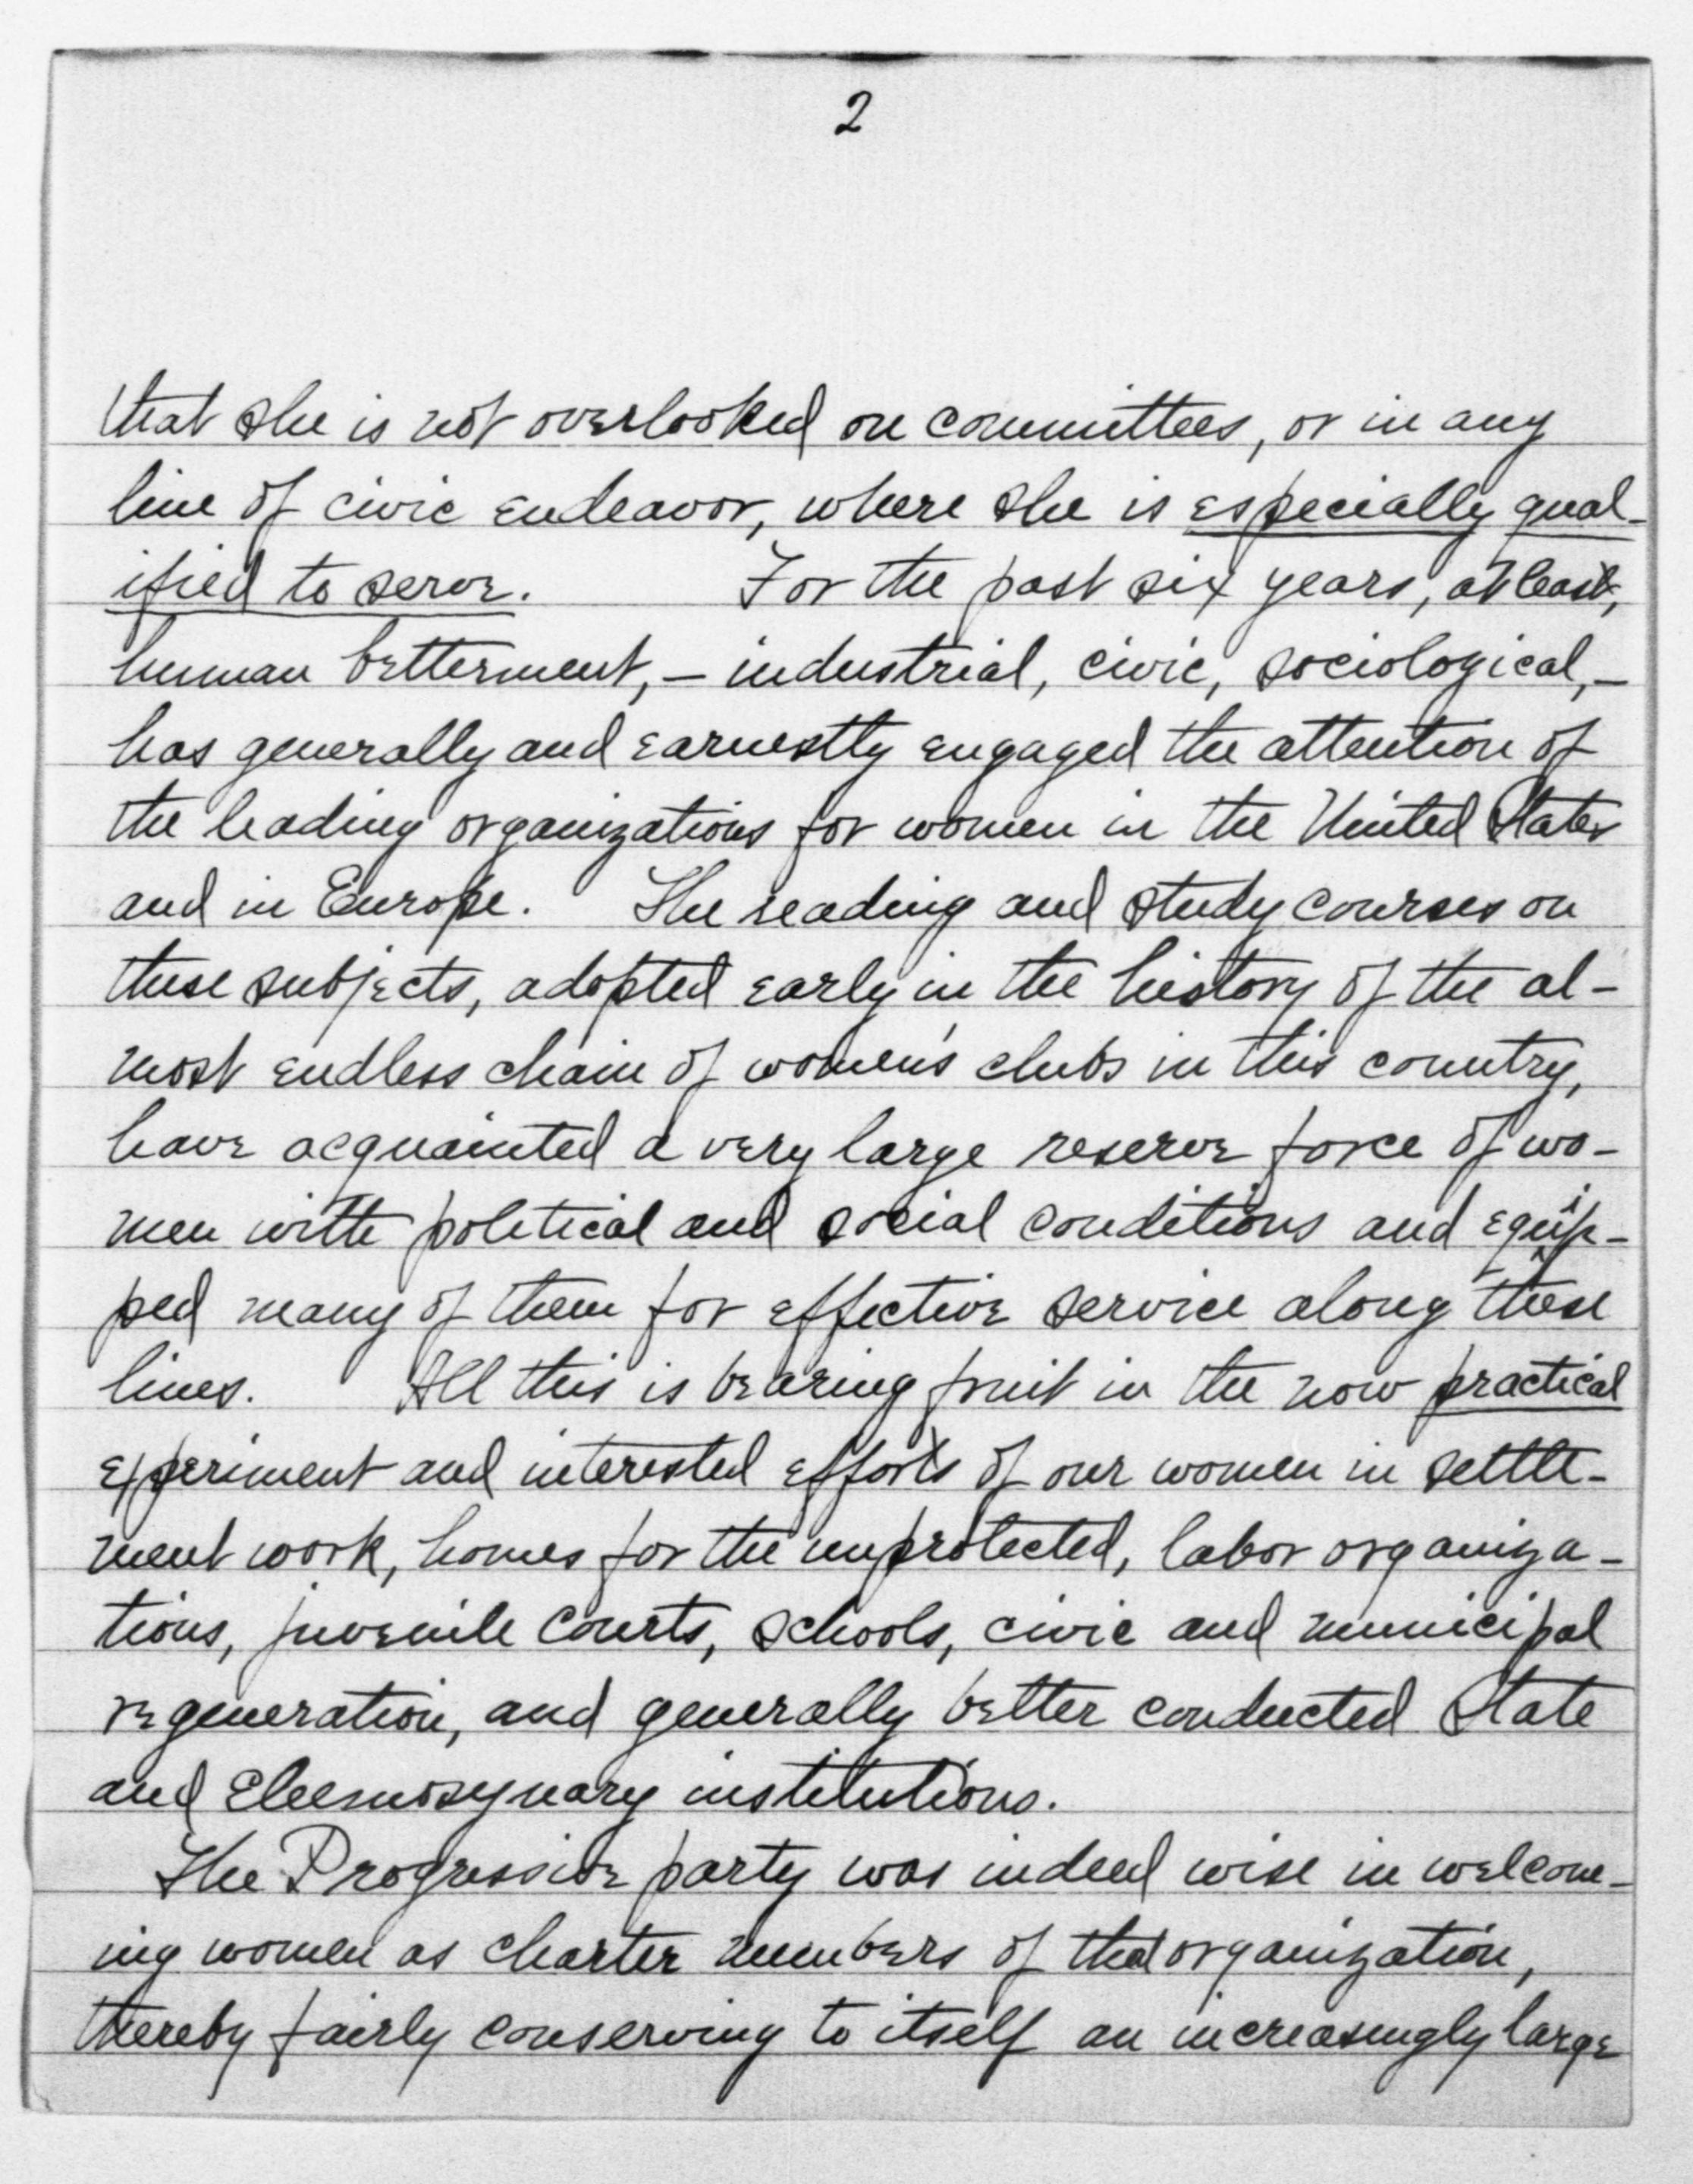 2
that she is not overlooked on committees, or in any
line of civic endeavor, where she is especially qual-
ified to serve. For the past six years, at least,
human betterment, - industrial, civic, sociological, -
has generally and earnestly engaged the attention of
the leading organizations for women in the United States
and in Europe. The reading and study courses on
these subjects, adopted early in the history of the al-
most endless chain of women's clubs in this country,
have acquainted a very large reserve force of wo-
men with political and social conditions and equip-
ped many of them for effective service along these
lines. All this is bearing fruit in the now practical
experiment and interested efforts of our women in settle-
ment work, homes for the unprotected, labor organiza-
tions, juvenile courts, schools, civic and municipal
regeneration, and generally better conducted State
and Eleemosynary institutions.
The Progressive party was indeed wise in welcom-
ing women as charter members of that organization,
thereby fairly conserving to itself an increasingly large